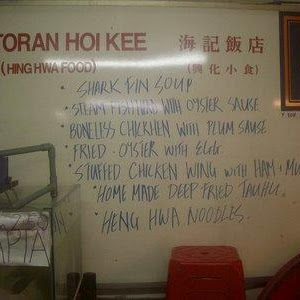 TORAN HOI KEE 海記飯店
(HING HWA FOOD) (興化小食)
• SHARK FIN SOUP
• STEAM FISH HEAD WITH OYSTER SAUSE
• BONELESS CHICKHEN WITH PLUM SAUSE
• FRIED . OYSTER WITH EGG.
• STUFFED CHICKEN WING WITH HAM + MU
• HOME MADE DEEP FRIED TAUHU.
• HENG HWA NOODLES.